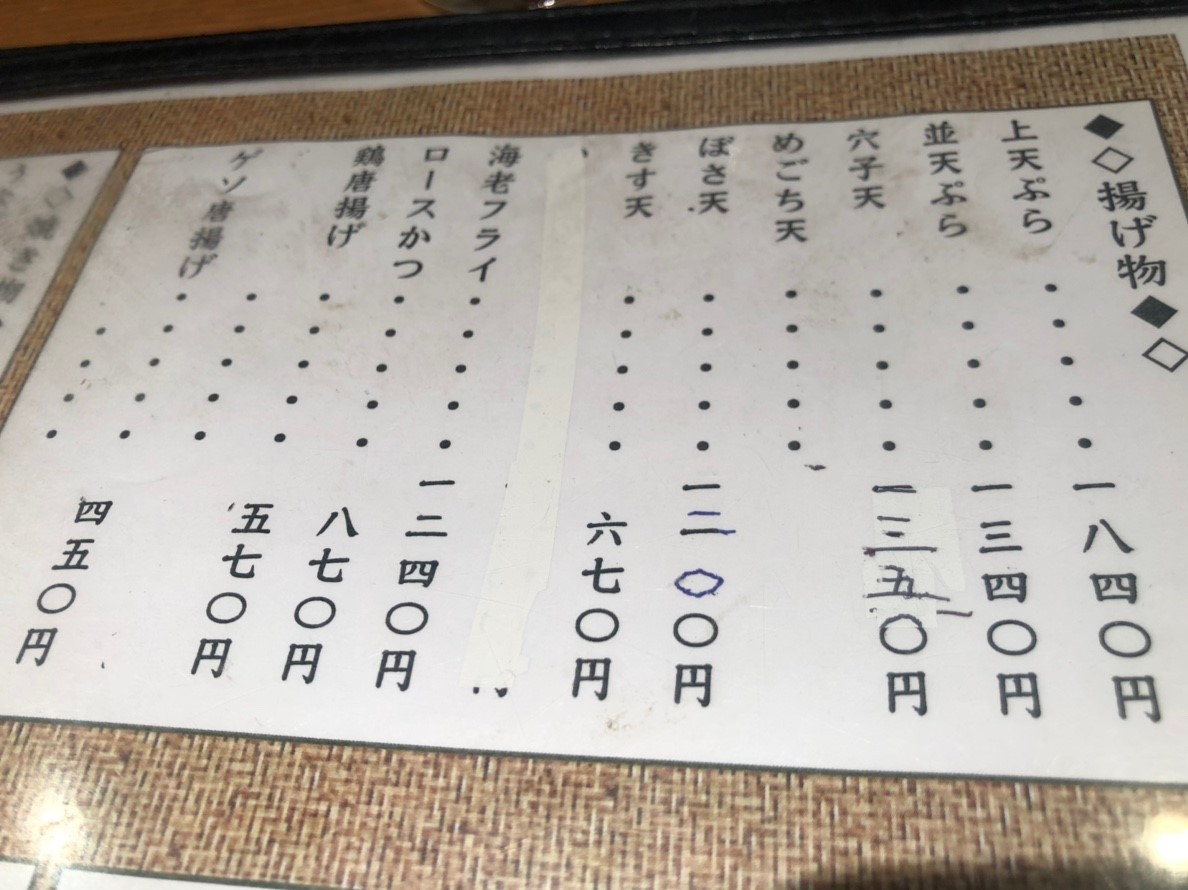 ◆◇揚げ物◆◇
上天ぷら・・・・・一八四〇円
並天ぷら・・・・・一三四〇円
穴子天・・・・・一三五〇円
めごち天・・・・・
ぼさ天・・・・・一二〇〇円
きす天・・・・・六七〇円
海老フライ・・・・・一二四〇円
ロースかつ・・・・・八七〇円
鶏唐揚げ・・・・・五七〇円
ゲソ唐揚げ・・・・・四五〇円
◆◇焼き物